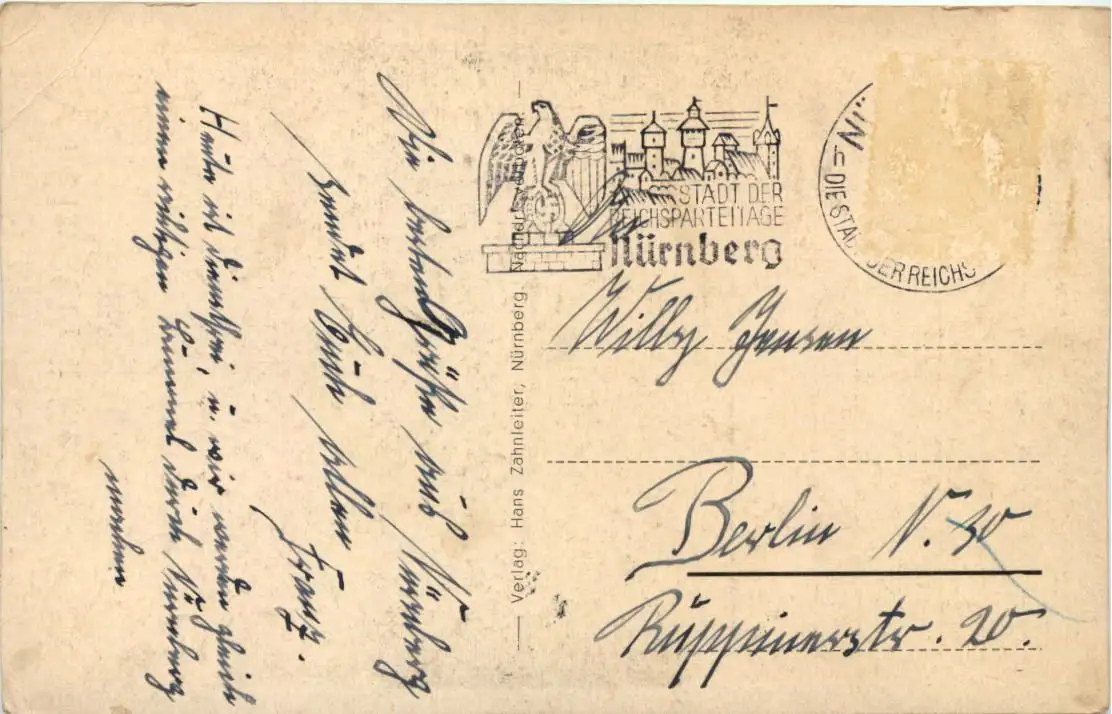 Die besten Grüße aus Nürnberg
sendet Euch allen
Franz.
Heute ist dienstfrei u. wir werden gleich
einen richtigen Bummel durch Nürnberg
machen
Verlag: Hans Zahnleiter, Nürnberg. Nachdr. verboten.
STADT DER
REICHSPARTEITAGE
Nürnberg
DIE STADT DER REICHS
Willy Jensen
Berlin N. 30
Ruppinerstr. 20.